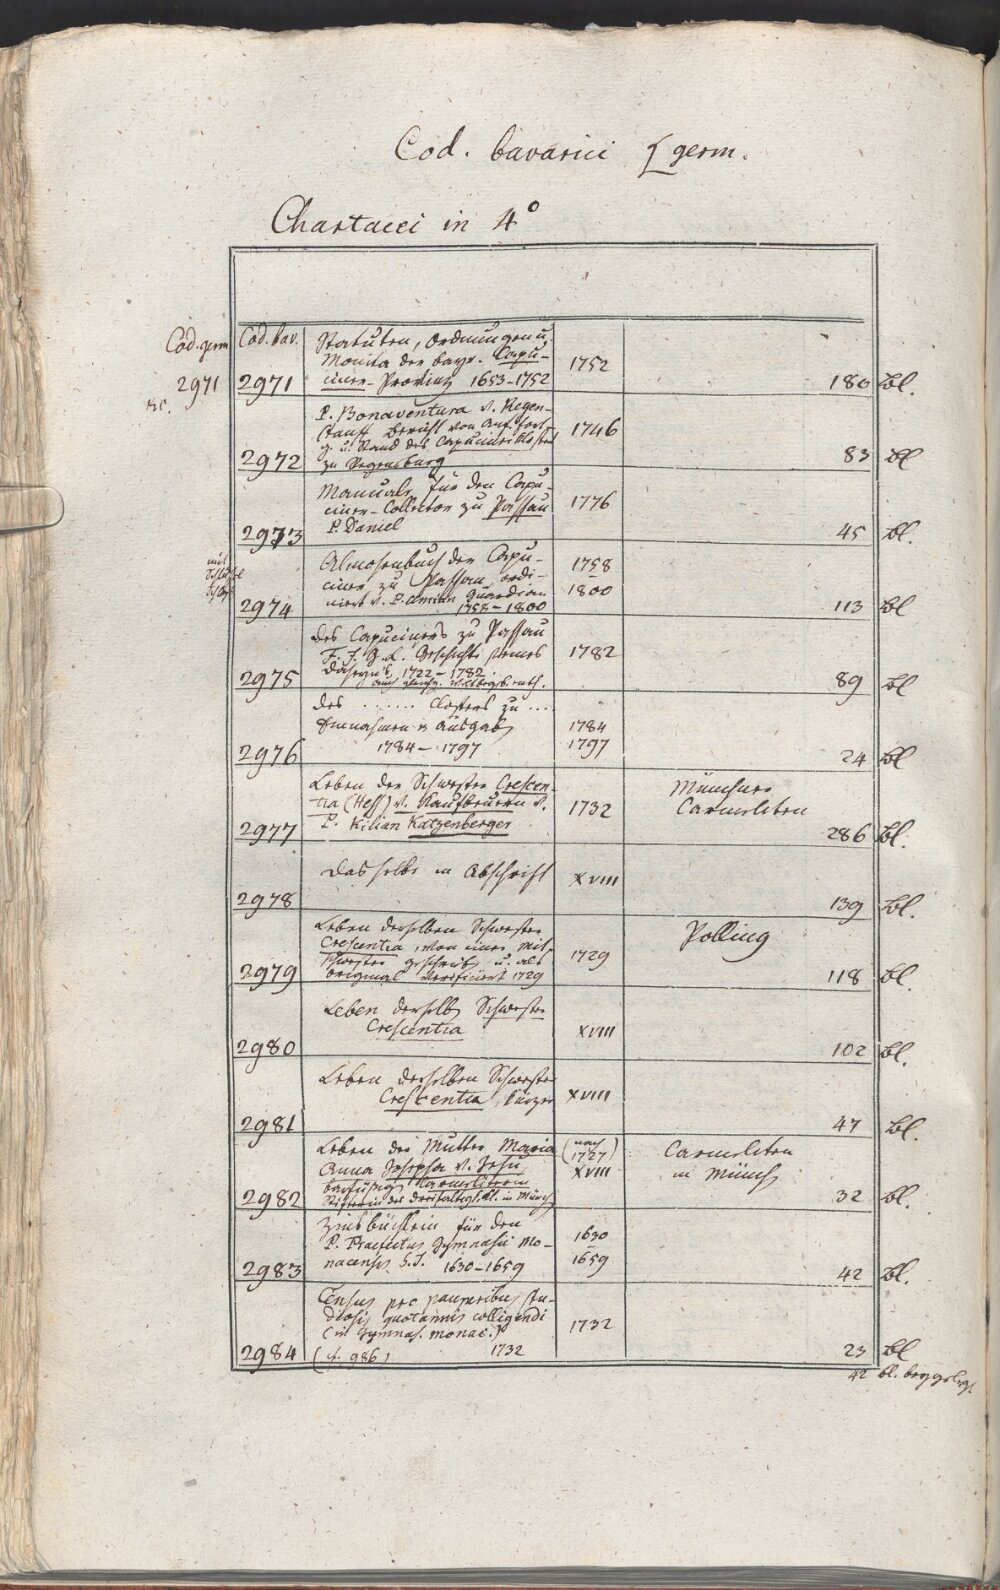 Cod. bavarici [germ.
Chartacei in 4°
Cod. germ
2971
Cod. bav.
2971
Statuten, Ordnungen u.
Monita der bayr. Capu-
ciner-Provinz 1653-1752
1752
180 Bl.
2972
P. Bonaventura v. Regen-
stauff Bericht von Anf. Fort-
g. u. Stand des Capucinerklosters
zu Regensburg
1746
83 Bl
2973
Manuale für den Capu-
ciner-Collector zu Passau
P. Daniel
1776
45 Bl.
mit
2974
Almosenbuch der Capu-
ciner zu Passau, ordi-
niert v. P. Guardian
1758-1800
1758
-
1800
113 Bl
2975
des Capuciners zu Passau
F. J. Geschichte seines
Daseyn's 1722-1782
1782
89 Bl
2976
des ...... Closters zu ...
Einnahmen u Ausgaben
1784-1797
1784
1797
24 Bl
2977
Leben der Schwester Crescen-
tia (Hess) v. Kaufbeuern v.
P. Kilian Katzenberger
1732
Münchner
Carmeliten
286 Bl.
2978
dasselbe in Abschrift
XVIII
139 Bl.
2979
Leben derselben Schwester
Crescentia, von einer Mit-
schwester geschrieben u. als
Original verificiert 1729
1729
Polling
118 Bl.
2980
Leben derselben Schwester
Crescentia
XVIII
102 Bl.
2981
Leben derselben Schwester
Crescentia, kürzer
XVIII
47 Bl.
2982
Leben der Mutter Maria
Anna Josepha v. Jesu,
barfüßigen Carmeliterin
Stifterin des Dreifaltigk. Kl. in Münch
(nach
1727)
XVIII
Carmeliten
in Münch
32 Bl.
2983
Zinsbüchlein für den
P. Praefectus Gymnasii Mo-
nacensis S. J. 1630-1659
1630
-
1659
42 Bl.
2984
Census pro pauperibus stu-
diosis quotannis colligendi
(in Gymnas. Monac.)
(cf. 986) 1732
1732
23 Bl
42 Bl. beygelegt